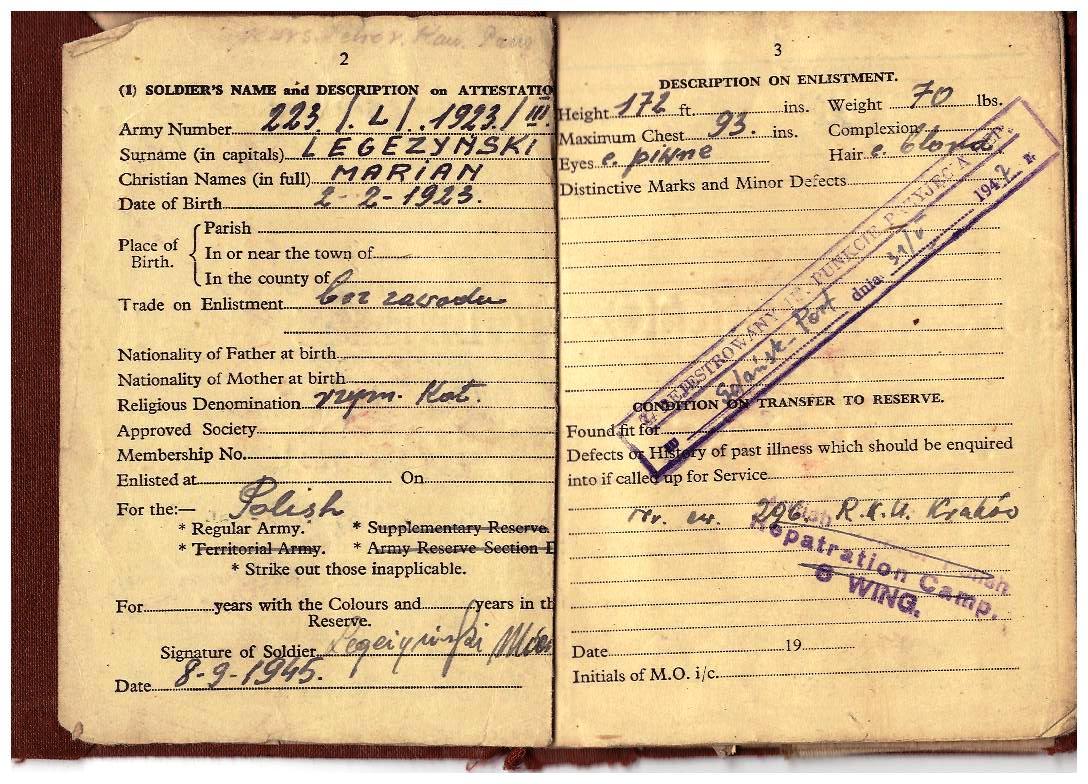 2
(1) SOLDIER'S NAME and DESCRIPTION on ATTESTATIO
Army Number 223 / L / 1923 / III
Surname (in capitals) LEGEZYNSKI
Christian Names (in full) MARIAN
Date of Birth 2-2-1923.
Place of Birth.
Parish
In or near the town of
In the county of
Trade on Enlistment bez zawodu
Nationality of Father at birth
Nationality of Mother at birth
Religious Denomination rzym. Kat.
Approved Society
Membership No.
Enlisted at On
For the:— Polish
* Regular Army. * Supplementary Reserve.
* Territorial Army. * Army Reserve Section D
* Strike out those inapplicable.
For years with the Colours and years in th
Reserve.
Signature of Soldier
Date 8-9-1945.
3
DESCRIPTION ON ENLISTMENT.
Height 172 ft. ins. Weight 70 lbs.
Maximum Chest 93. ins. Complexion
Eyes c. piwne Hair c. blond
Distinctive Marks and Minor Defects
ZAREJESTROWANY W PUNKCIE PRZYJĘCIA
w Gdańsk-Port dnia 31/5 1947 r.
CONDITION ON TRANSFER TO RESERVE.
Found fit for
Defects or History of past illness which should be enquired
into if called up for Service
296. R.K.U. Kraków
Polish
Repatration Camp,
6 WING.
Date 19
Initials of M.O. i/c.